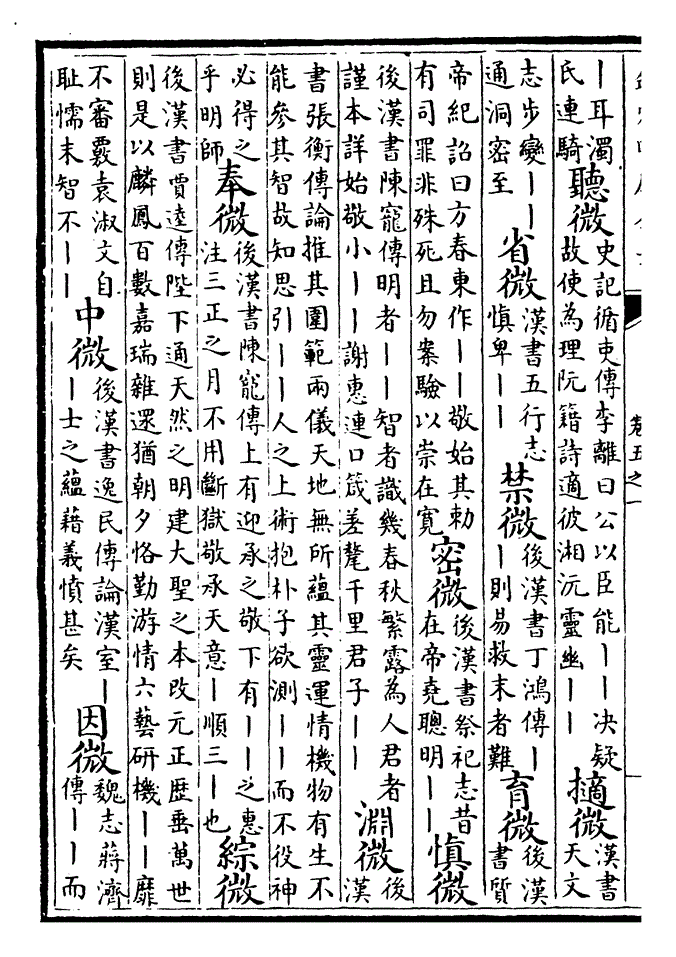 卷五之一
｜耳濁氏連騎聽微史記循吏傳李離曰公以臣能｜｜决疑故使為理阮籍詩適彼湘沅靈幽｜｜摘微漢書天文
志步變｜｜通洞密至省微漢書五行志慎卑｜｜禁微後漢書丁鴻傳｜｜則易救末者難育微後漢書質
帝紀詔曰方春東作｜｜敬始其勅有司罪非殊死且勿案驗以崇在寬密微後漢書祭祀志昔在帝堯聰明｜｜慎微
後漢書陳寵傳明者｜｜智者識幾春秋繁露為人君者謹本詳始敬小｜｜謝惠連口箴差氂千里君子｜｜淵微後漢
書張衡傳論推其圍範兩儀天地無所蘊其靈運情機物有生不能參其智故知思引｜｜人之上術抱朴子欲測｜｜而不役神
必得之乎明師奉微後漢書陳寵傳上有迎承之敬下有｜｜之惠注三正之月不用斷獄敬承天意｜順三｜也綜微
後漢書賈逵傳陛下通天然之明建大聖之本改元正歴垂萬世則是以麟鳳百數嘉瑞雜遝猶朝夕恪勤游情六藝研機｜｜靡
不審覈袁淑文自耻懦末智不｜｜中微後漢書逸民傳論漢室｜｜士之蘊藉義憤甚矣因微魏志蔣濟傳｜｜而